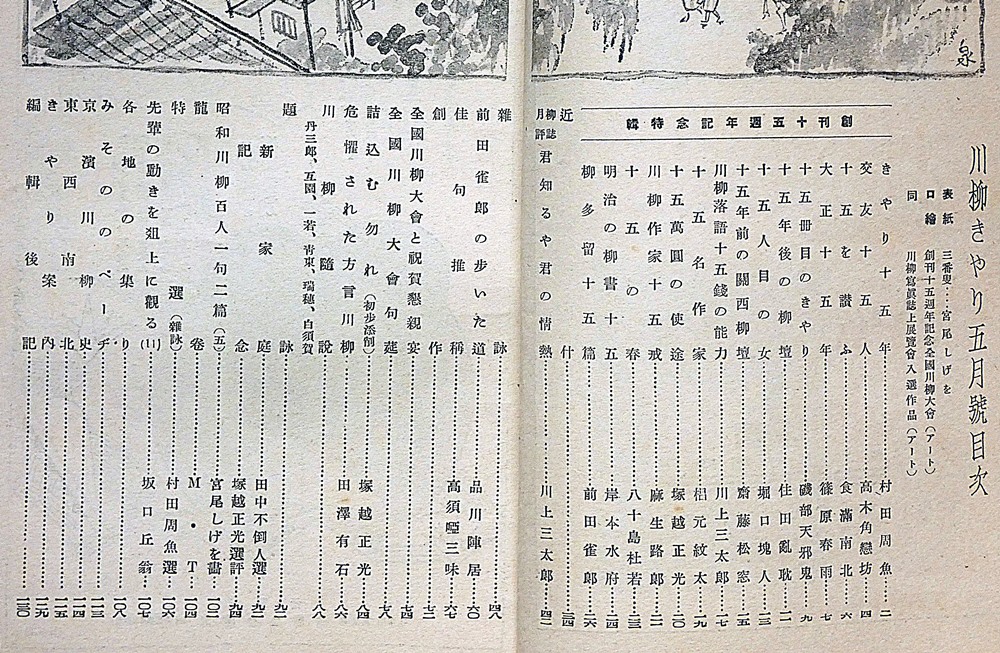 川柳きやり五月號目次
表紙 三番叟……宮尾しげを
口繪 創刊十五週年記念全國川柳大會(アート)
同 川柳寫眞誌上展覽會入選作品(アート)
創刊十五週年記念特輯
きやり十五年……村田周魚…二
交友十五人……高木角戀坊…四
十五を讃ふ……食滿南北…六
大正十五年……篠原春雨…七
十五册目のきやり……磯部天邪鬼…九
十五年後の柳壇……住田亂耽…二
十五人目の女……堀口塊人…三
十五年前の關西柳壇……齋藤松窓…一五
川柳落語十五錢の能力……川上三太郎…一七
十五名作家……椙元紋太…一九
十五萬圓の使途……塚越正光…二〇
川柳作家十五戒……麻生路郎…三
十五の春……八十島杜若…三
明治の柳書十五……岸本水府…二四
柳多留十五篇……前田雀郎…二六
近什……三四
柳誌月評 君知るや君の情熱……川上三太郎…四二
雜詠……四八
前田雀郎の步いた道……品川陣居…六〇
佳句推稱……高須啞三味…六七
創作……七三
全國川柳大會と祝賀懇親宴……七四
全國川柳大會句莚……七八
詰込む勿れ(初步添削)……塚越正光…八四
危懼された方言川柳……田澤有石…八六
川柳隨說……八八
丹三郎、互園、一若、靑東、瑞穗、白須賀
題詠……九一
新家庭……田中不倒人選…九二
記念……塚越正光選評…九四
昭和川柳百人一句二篇(五)……宮尾しげを畵…一〇二
龍卷……M・T…一〇四
特選(雜詠)……村田周魚選…一〇六
先輩の動きを俎上に觀る(1)……坂口丘翁…一〇七
各地の集り……一〇八
みそのゝペーヂ……一一三
京濱川柳史……一一四
東西南北……一一五
きやり案內……一一九
編輯後記……一二〇
泉